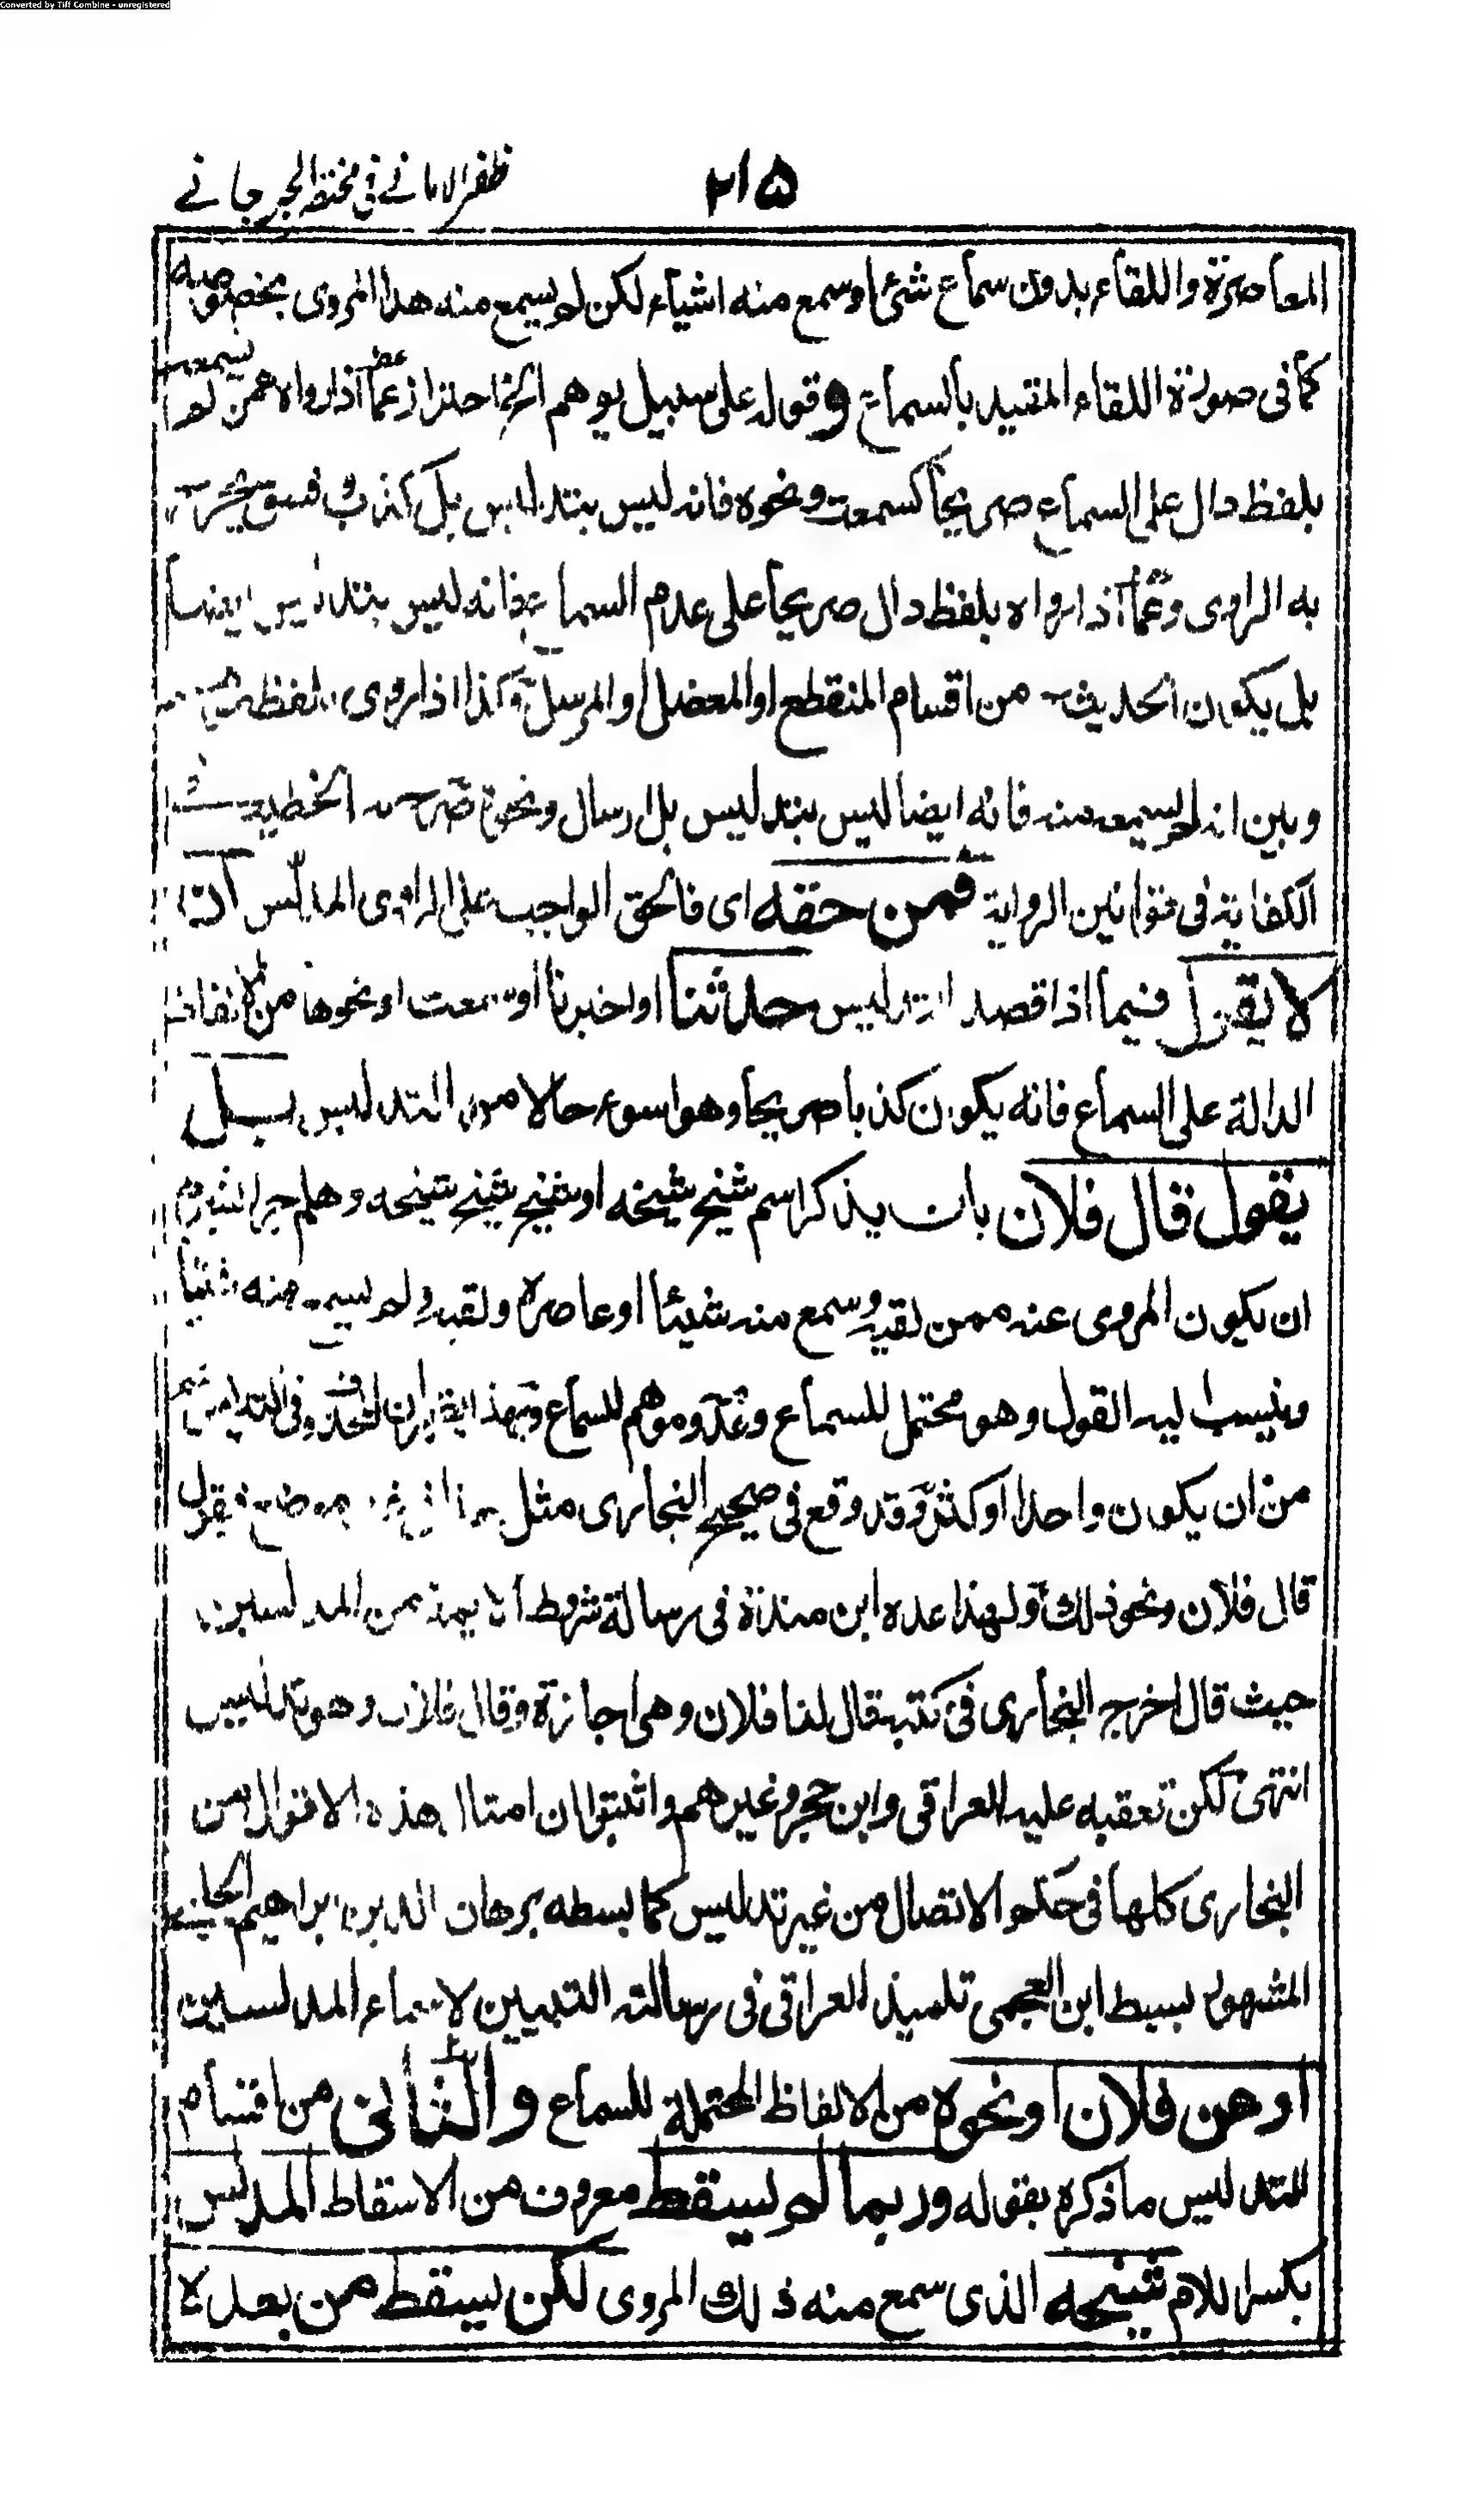 Converted by Tiff Combine - unregistered
ظفر الامانے فی مختصر الجرجانے
۲۱۵
المعاصرة واللقاء بدون سماع شئ او سمع منه اشياء لكن لم يسمع منه هذا المروى بخصوصه
كما فى صورة اللقاء المقيد بالسماع وقوله على سبيل يوهم الخ احتراز عما اذا رواه عمن لم يسمعه
بلفظ دال على السماع صريحا كسمعت ونحوه فانه ليس بتدليس بل كذب وفسق يجرح
به الراوى وعما اذا رواه بلفظ دال صريحا على عدم السماع فانه ليس بتدليس ايضا
بل يكون الحديث من اقسام المنقطع او المعضل او المرسل وكذا اذا روى بلفظ
وبين انه لم يسمعه منه فانه ايضا ليس بتدليس بل ارسال ونحوه صرح به الخطيب فى
الكفاية فى قوانين الرواية فمن حقه اى فالحق الواجب على الراوى المدلس ان
لا يقول فيما اذا قصد التدليس حدثنا او اخبرنا او سمعت او نحوها من الالفاظ
الدالة على السماع فانه يكون كذبا صريحا وهو اسوء حالا من التدليس بل
يقول قال فلان بان يذكر اسم شيخ شيخه او شيخ شيخ شيخه وهلم جرا بشرط
ان يكون المروى عنه ممن لقيه وسمع منه شيئا او عاصره ولقيه ولم يسمع منه شيئا
وينسب اليه القول وهو محتمل للسماع وعدمه وموهم للسماع وبهذا يظهر ان المحذوف فى التدليس اعم
من ان يكون واحدا او اكثر وقد وقع فى صحيح البخارى مثل هذا فى غير موضع فيقول
قال فلان ونحو ذلك ولهذا عده ابن مندة فى رسالة شروط الائمة من المدلسين
حيث قال اخرج البخارى فى كتبه قال لنا فلان وهى اجازة وقال فلان وهو تدليس
انتهى لكن تعقبه عليه العراقى وابن حجر وغيرهم واثبتوا ان امثال هذه الاقوال من
البخارى كلها فى حكم الاتصال من غير تدليس كما بسطه برهان الدين ابراهيم الحلبى
المشهور بسبط ابن العجمى تلميذ العراقى فى رسالته التبيين لاسماء المدلسين
او عن فلان او نحوه من الالفاظ المحتملة للسماع والثانى من اقسام
التدليس ما ذكره بقوله وربما لم يسقط معروف من الاسقاط المدلس
بكسر اللام شيخه الذى سمع منه ذلك المروى لكن يسقط من بعده